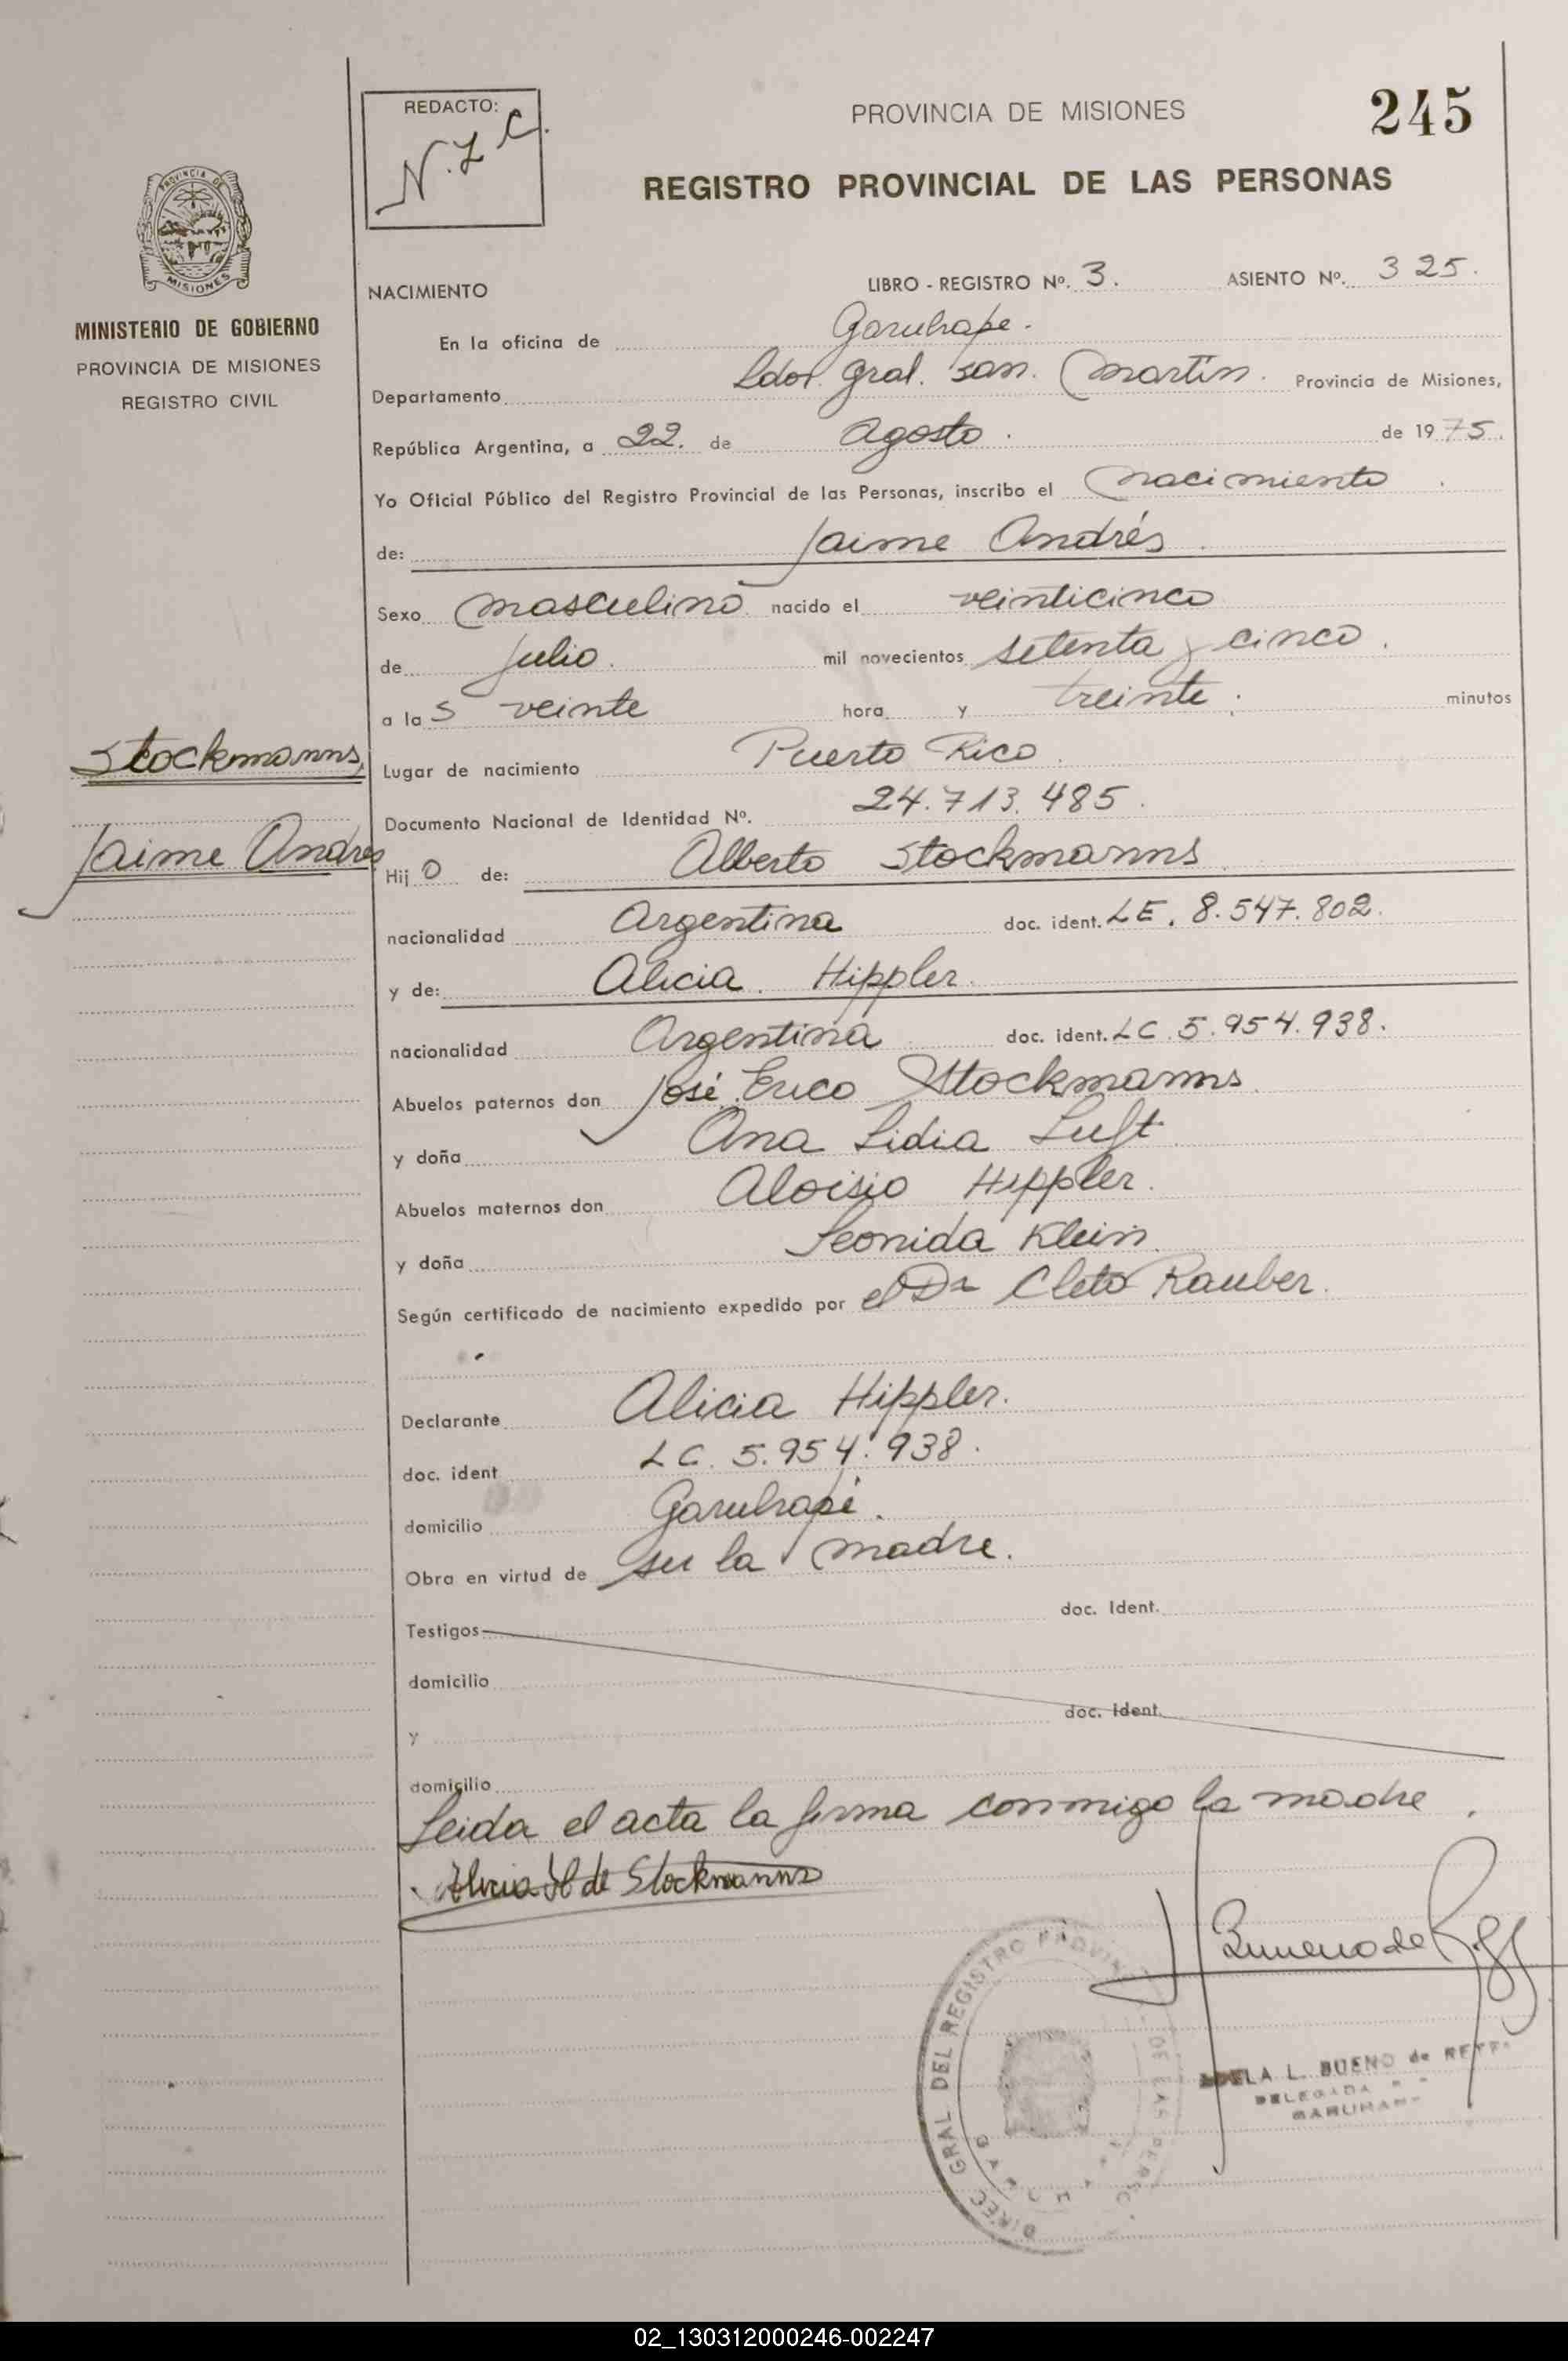 REDACTO:
N.L.C.
PROVINCIA DE MISIONES
245
REGISTRO PROVINCIAL DE LAS PERSONAS
PROVINCIA DE
MISIONES
MINISTERIO DE GOBIERNO
PROVINCIA DE MISIONES
REGISTRO CIVIL
NACIMIENTO
LIBRO - REGISTRO Nº. 3. ASIENTO Nº. 325.
En la oficina de Garuhape.
Departamento Ldor. Gral. San. Martín. Provincia de Misiones,
República Argentina, a 22. de Agosto. de 1975.
Yo Oficial Público del Registro Provincial de las Personas, inscribo el nacimiento.
de: Jaime Andrés.
Sexo masculino nacido el veinticinco
de Julio. mil novecientos setenta y cinco.
a las veinte hora y treinte. minutos
Stockmanns,
Jaime Andrés
Lugar de nacimiento Puerto Rico.
Documento Nacional de Identidad Nº. 24.713.485.
Hijo de: Alberto Stockmanns.
nacionalidad Argentina doc. ident. LE. 8.547.802.
y de: Alicia. Hippler.
nacionalidad Argentina doc. ident. LC. 5.954.938.
Abuelos paternos don José Erico Stockmanns.
y doña Ana Lidia Luft.
Abuelos maternos don Aloisio Hippler.
y doña Leonida Klein.
Según certificado de nacimiento expedido por el Dr Cleto Rauber.
Declarante Alicia Hippler.
doc. ident LC. 5.954.938.
domicilio Garuhapé.
Obra en virtud de ser la madre.
doc. Ident.
Testigos
domicilio
doc. Ident.
y
domicilio
Leida el acta la firma conmigo la madre.
Alicia H de Stockmanns
DIREC. GRAL. DEL REGISTRO PROVIN. DE LAS PERSO.
LA L. BUENO de
DELEGADA
GARUHAPE
02_130312000246-002247